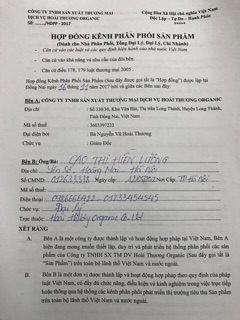 CÔNG TY TNHH SẢN XUẤT THƯƠNG MẠI
DỊCH VỤ HOÀI THƯƠNG ORGANIC
Số: /HDPP - 2017
Cộng Hòa Xã Hội chủ nghĩa Việt Nam
Độc Lập - Tự Do - Hạnh Phúc
HỢP ĐỒNG KÊNH PHÂN PHỐI SẢN PHẨM
(Dành cho Nhà Phân Phối, Tổng Đại Lý, Đại Lý, Chi Nhánh)
- Căn cứ điều 178, 179 luật thương mại 2005
Hợp đồng Kênh Phân Phối Sản Phẩm (Sau đây được gọi tắt là "Hợp Đồng") được lập tại
Đồng Nai ngày 16 tháng 11 năm 2017 bởi và giữa các bên:
Bên A: CÔNG TY TNHH SẢN XUẤT THƯƠNG MẠI DỊCH VỤ HOÀI THƯƠNG ORGANIC
Địa chỉ : Khu Văn Hải, Thị trấn Long Thành, Huyện Long Thành,
Tỉnh Đồng Nai, Việt Nam
Mã số thuế : 3603397223
Đại diện bởi : Bà Nguyễn Vũ Hoài Thương
Chức vụ : Giám Đốc
Bên B: Ông/Bà: CAO THỊ HIỀN LƯƠNG
Địa chỉ : Yên Sở, Hoàng Mai, Hà Nội
Số CMND: 012633338 Nơi Cấp: TP Hà Nội
Điện thoại :
Chức vụ : Đại lý
Trực thuộc : Hoài Thương Organic Co.Ltd
XÉT RẰNG
A. Bên A là một công ty được thành lập và hoạt động hợp pháp tại Việt Nam, Bên A
hiện đang mong muốn thiết lập, duy trì và phát triển hệ thống phân phối các sản
phẩm của Công ty TNHH SX TM DV Hoài Thương Organic (Sau đây gọi tắt là
"Sản Phẩm") trên toàn bộ lãnh thổ Việt Nam và nước ngoài.
B. Bên B là một đơn vị được thành lập và hoạt động hợp pháp theo quy định của pháp
luật Việt Nam, có đầy đủ chức năng, điều kiện và kinh nghiệm trong việc trực tiếp
hoặc thông qua hệ thống các kênh phân phối phát triển thị trường tiêu thụ Sản Phẩm
trên toàn bộ lãnh thổ Việt Nam và nước ngoài.